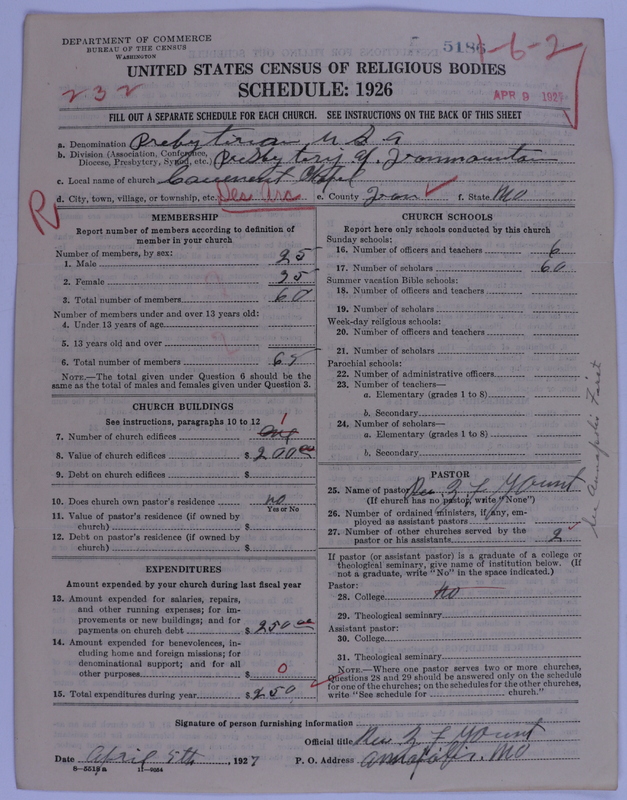 DEPARTMENT OF COMMERCE
BUREAU OF THE CENSUS
WASHINGTON
5186
1-6-2
UNITED STATES CENSUS OF RELIGIOUS BODIES
232
SCHEDULE: 1926
APR 9 192
FILL OUT A SEPARATE SCHEDULE FOR EACH CHURCH. SEE INSTRUCTIONS ON THE BACK OF THIS SHEET
a. Denomination Presbyterian U S A
b. Division (Association, Conference, Diocese, Presbytery, Synod, etc.) Presbytery of Ironmountain
c. Local name of church Chapel
d. City, town, village, or township, etc. Des Arc e. County Iron f. State Mo
R
MEMBERSHIP
Report number of members according to definition of
member in your church
Number of members, by sex:
1. Male 25
2. Female 35
3. Total number of members 60
Number of members under and over 13 years old:
4. Under 13 years of age
5. 13 years old and over
6. Total number of members
NOTE.—The total given under Question 6 should be
same as the total of males and females given under Question 3.
CHURCH BUILDINGS
See instructions, paragraphs 10 to 12
7. Number of church edifices one 1
8. Value of church edifices $ 200 00
9. Debt on church edifices $
10. Does church own pastor's residence no
Yes or No
11. Value of pastor's residence (if owned by
church) $
12. Debt on pastor's residence (if owned by
church) $
EXPENDITURES
Amount expended by your church during last fiscal year
13. Amount expended for salaries, repairs,
and other running expenses; for im-
provements or new buildings; and for
payments on church debt $ 250 00
14. Amount expended for benevolences, in-
cluding home and foreign missions; for
denominational support; and for all
other purposes $ 0
15. Total expenditures during year $ 250
CHURCH SCHOOLS
Report here only schools conducted by this church
Sunday schools:
16. Number of officers and teachers 6
17. Number of scholars 60
Summer vacation Bible schools:
18. Number of officers and teachers
19. Number of scholars
Week-day religious schools:
20. Number of officers and teachers
21. Number of scholars
Parochial schools:
22. Number of administrative officers
23. Number of teachers—
a. Elementary (grades 1 to 8)
b. Secondary
24. Number of scholars—
a. Elementary (grades 1 to 8)
b. Secondary
PASTOR
25. Name of pastor Rev Z L Yount
(If church has no pastor, write "None")
26. Number of ordained ministers, if any, em-
ployed as assistant pastors
27. Number of other churches served by the
pastor or his assistants 2
If pastor (or assistant pastor) is a graduate of a college or
theological seminary, give name of institution below. (If
not a graduate, write "No" in the space indicated.)
Pastor:
28. College No
29. Theological seminary
Assistant pastor:
30. College
31. Theological seminary
NOTE.—Where one pastor serves two or more churches,
Questions 28 and 29 should be answered only on the schedule
for one of the churches; on the schedules for the other churches,
write "See schedule for church."
Annapolis First
Signature of person furnishing information
Official title Rev Z L Yount
Date April 5th, 1927 P. O. Address Annapolis, Mo
8—5518a 11—9254